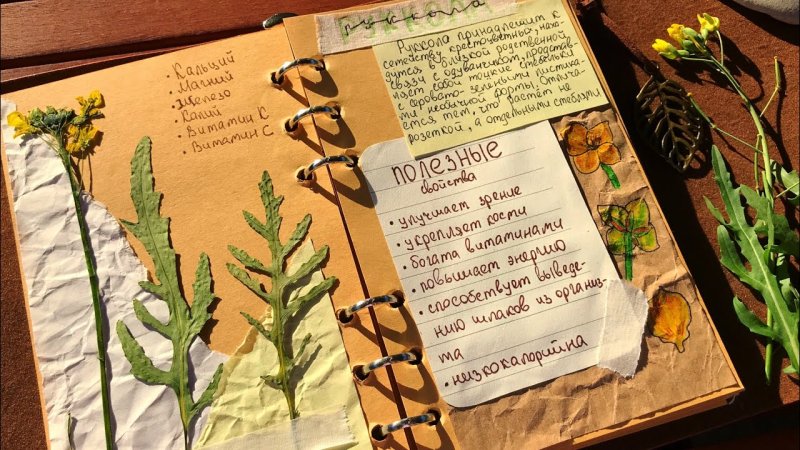 • Кальций
• Магний
• Железо
• Калий
• Витамин К
• Витамин С
РУККОЛА
руккола
Руккола принадлежит к
семейству крестоцветных, нахо-
дится в близкой родственной
связи с одуванчиком, представ-
ляет собой тонкие стебельки
с серовато-зелеными листика-
ми необычной формы. Отлича-
ется тем, что растёт не
розеткой, а отдельными стеблями
ПОЛЕЗНЫЕ
свойства
• улучшает зрение
• укрепляет кости
• богата витаминами
• повышает энергию
• способствует выведе-
нию шлаков из организ-
ма
• низкокалорийна